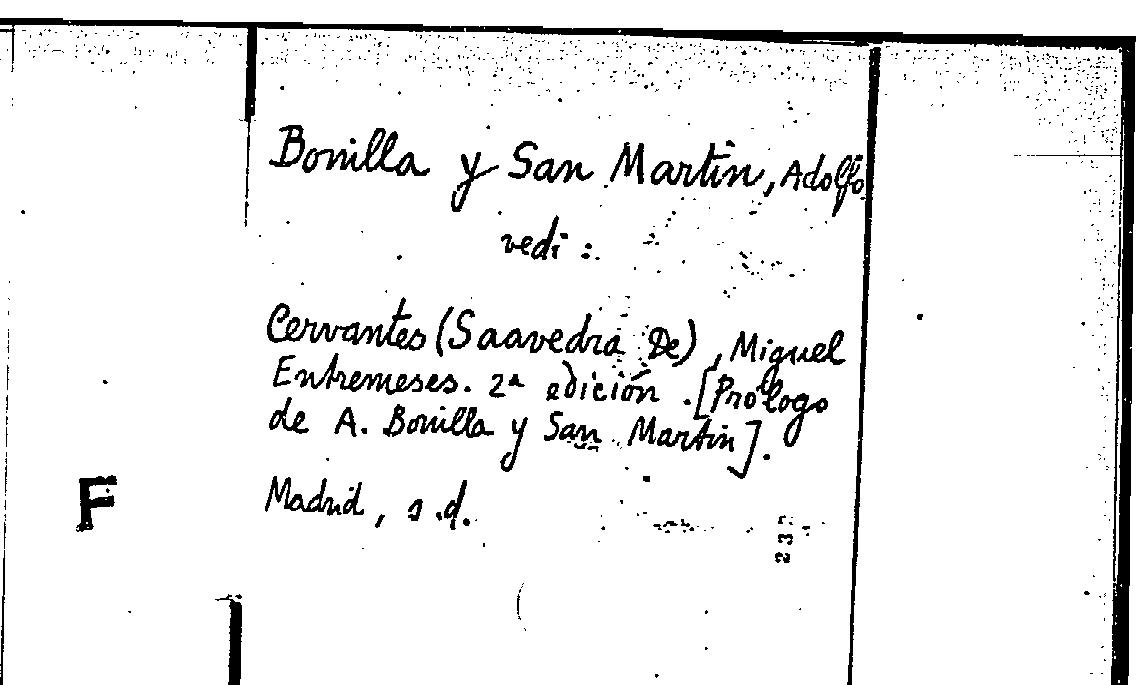 Bonilla y San Martin, Adolfo
vedi :
Cervantes (Saavedra De), Miguel
Entremeses. 2ª edición. [Prólogo
de A. Bonilla y San Martin].
F
Madrid, s.d.